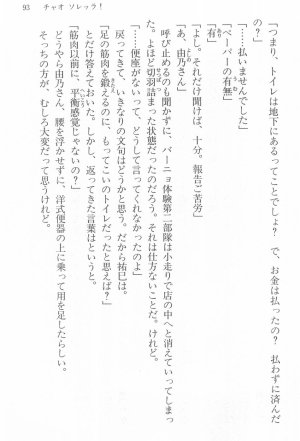 93 チャオ ソレッラ!
「つまり、トイレは地下にあるってことでしょ? で、お金は払ったの? 払わずに済んだ
の?」
「……払いませんでした」
「ペーパーの有無」
「有」
「よし。それだけ聞けば、十分。報告ご苦労」
「あ、由乃さん」
呼び止めるのも聞かずに、バーニョ体験第二部隊は小走りで店の中へと消えていってしまっ
た。よほど切羽詰まった状態だったのだろう。それは仕方ないことだ。けれど。
「……便座がないって、どうして言ってくれなかったのよ」
戻ってきて、いきなりの文句はどうかと思う。だから祐巳は。
「足の筋肉を鍛えるのに、もってこいのトイレだったと思えば?」
とだけ答えておいた。しかし、返ってきた言葉はというと。
「筋肉以前に、平衡感覚じゃないの?」
どうやら由乃さん、腰を浮かせずに、洋式便器の上に乗って用を足したらしい。
そっちの方が、むしろ大変だって思うけれど。